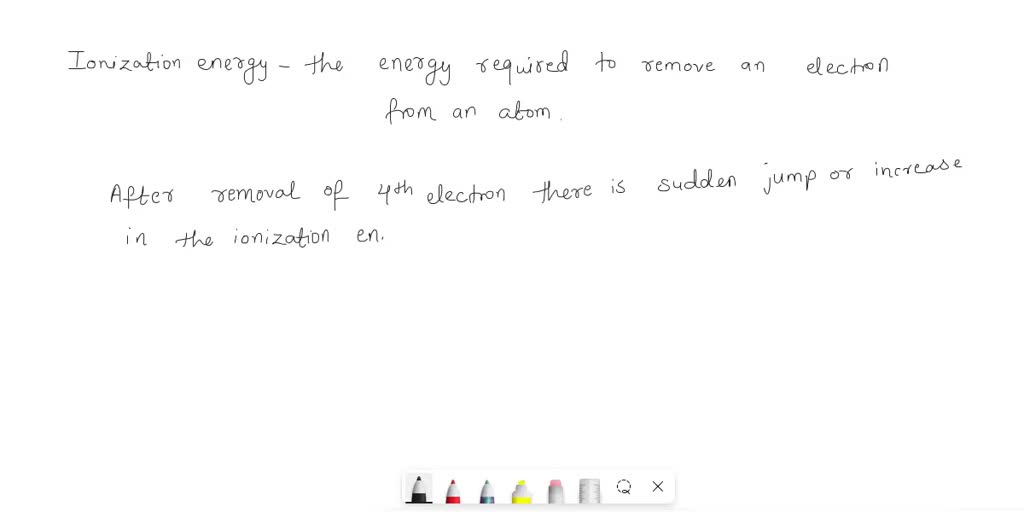 Ionization energy - the energy required to remove an electron
from an atom.
After removal of 4th electron there is sudden jump or increase
in the ionization en.